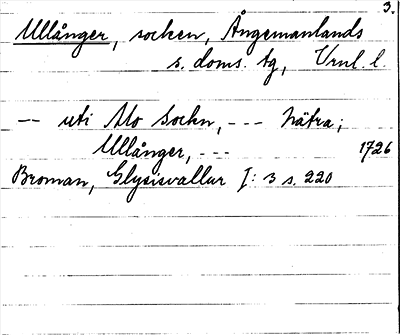 3.
Ullånger, socken, Ångermanlands
s. doms. tg, Vrnl. l.
-- uti Mo Sochn, --- Nätra;
Ullånger, --- 1726
Broman, Glysisvallur I: 3 s. 220